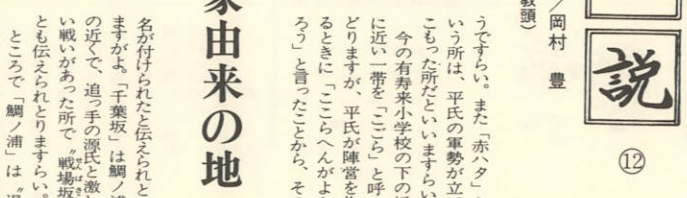 説
⑫
／岡村 豊
教頭）
うですらい。また「赤ハタ」
いう所は、平氏の軍勢が立
こもった所だといいますらい
今の有寿来小学校の下の
に近い一帯を「こごら」と呼
どりますが、平氏が陣営を
るときに「ここらへんがよ
ろう」と言ったことから、そ
家由来の地
名が付けられたと伝えられと
ますがよ。「千葉坂」は鯛ノ浦
の近くで、追っ手の源氏と激
い戦いがあった所で〝戦場坂
せんばさ
とも伝えられとりますらい。
ところで「鯛ノ浦」は〝